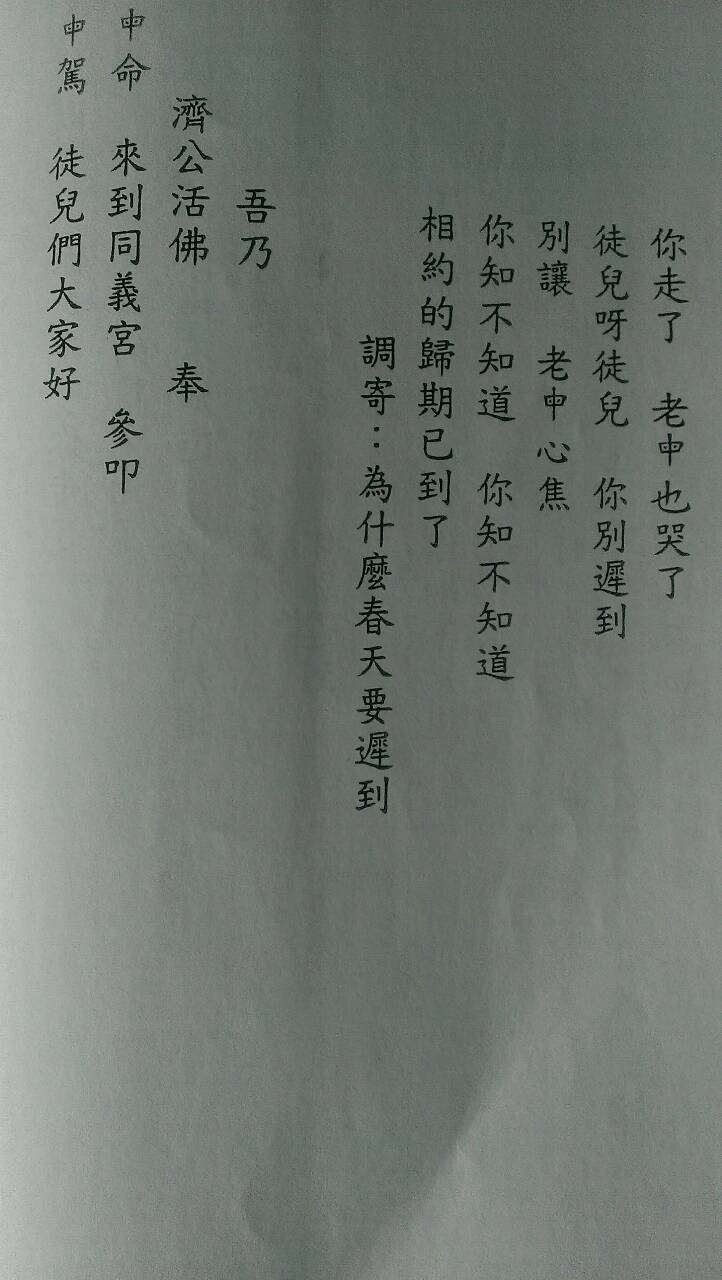 你走了　老申也哭了
徒兒呀徒兒　你別遲到
別讓　老申心焦
你知不知道　你知不知道
相約的歸期已到了
調寄：為什麼春天要遲到
吾乃
濟公活佛　奉
申命　來到同義宮　參叩
申駕　徒兒們大家好